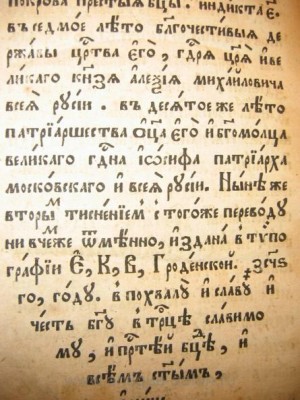 покрова прест҃ыѧ бц҃ы. индикта є҃.
въседмое лѣто бл҃гочестивыѧ де
ржавы црⷭ҇тва єгѡ̀, гдⷭ҇рѧ цр҃ѧ и҆ ве
ликаго кн҃зѧ алеѯі́ѧ миха́йловича
всеѧ̀ руси́и. въ десѧ́тое же лѣто
патрїа́ршества ѻц҃а єгѡ̀ и҆ бг҃омо́лца
вели́каго гдⷭ҇на і҆ѡ́сифа патрїа́рха
моско́вскаго и҆ всеѧ̀ руси́и. Ны́нѣ же
вторыⷨ тисне́нїеⷨ с тогоже перево́ду
ни в чеⷨже ѿмѣ́нно, и҆здана̀ в тѷпо
гра́фїи Є҃, К, В, Гро́денской. ҂зсч҃ѕ
го, го́ду. в похвалꙋ̀ и҆ сла́вꙋ и҆
че́сть бг҃ꙋ в трⷪ҇цѣ сла́вимо
мꙋ, и҆ прⷭ҇тѣ́й бц҃дѣ, и҆
всѣ́мъ ст҃ы́мъ,